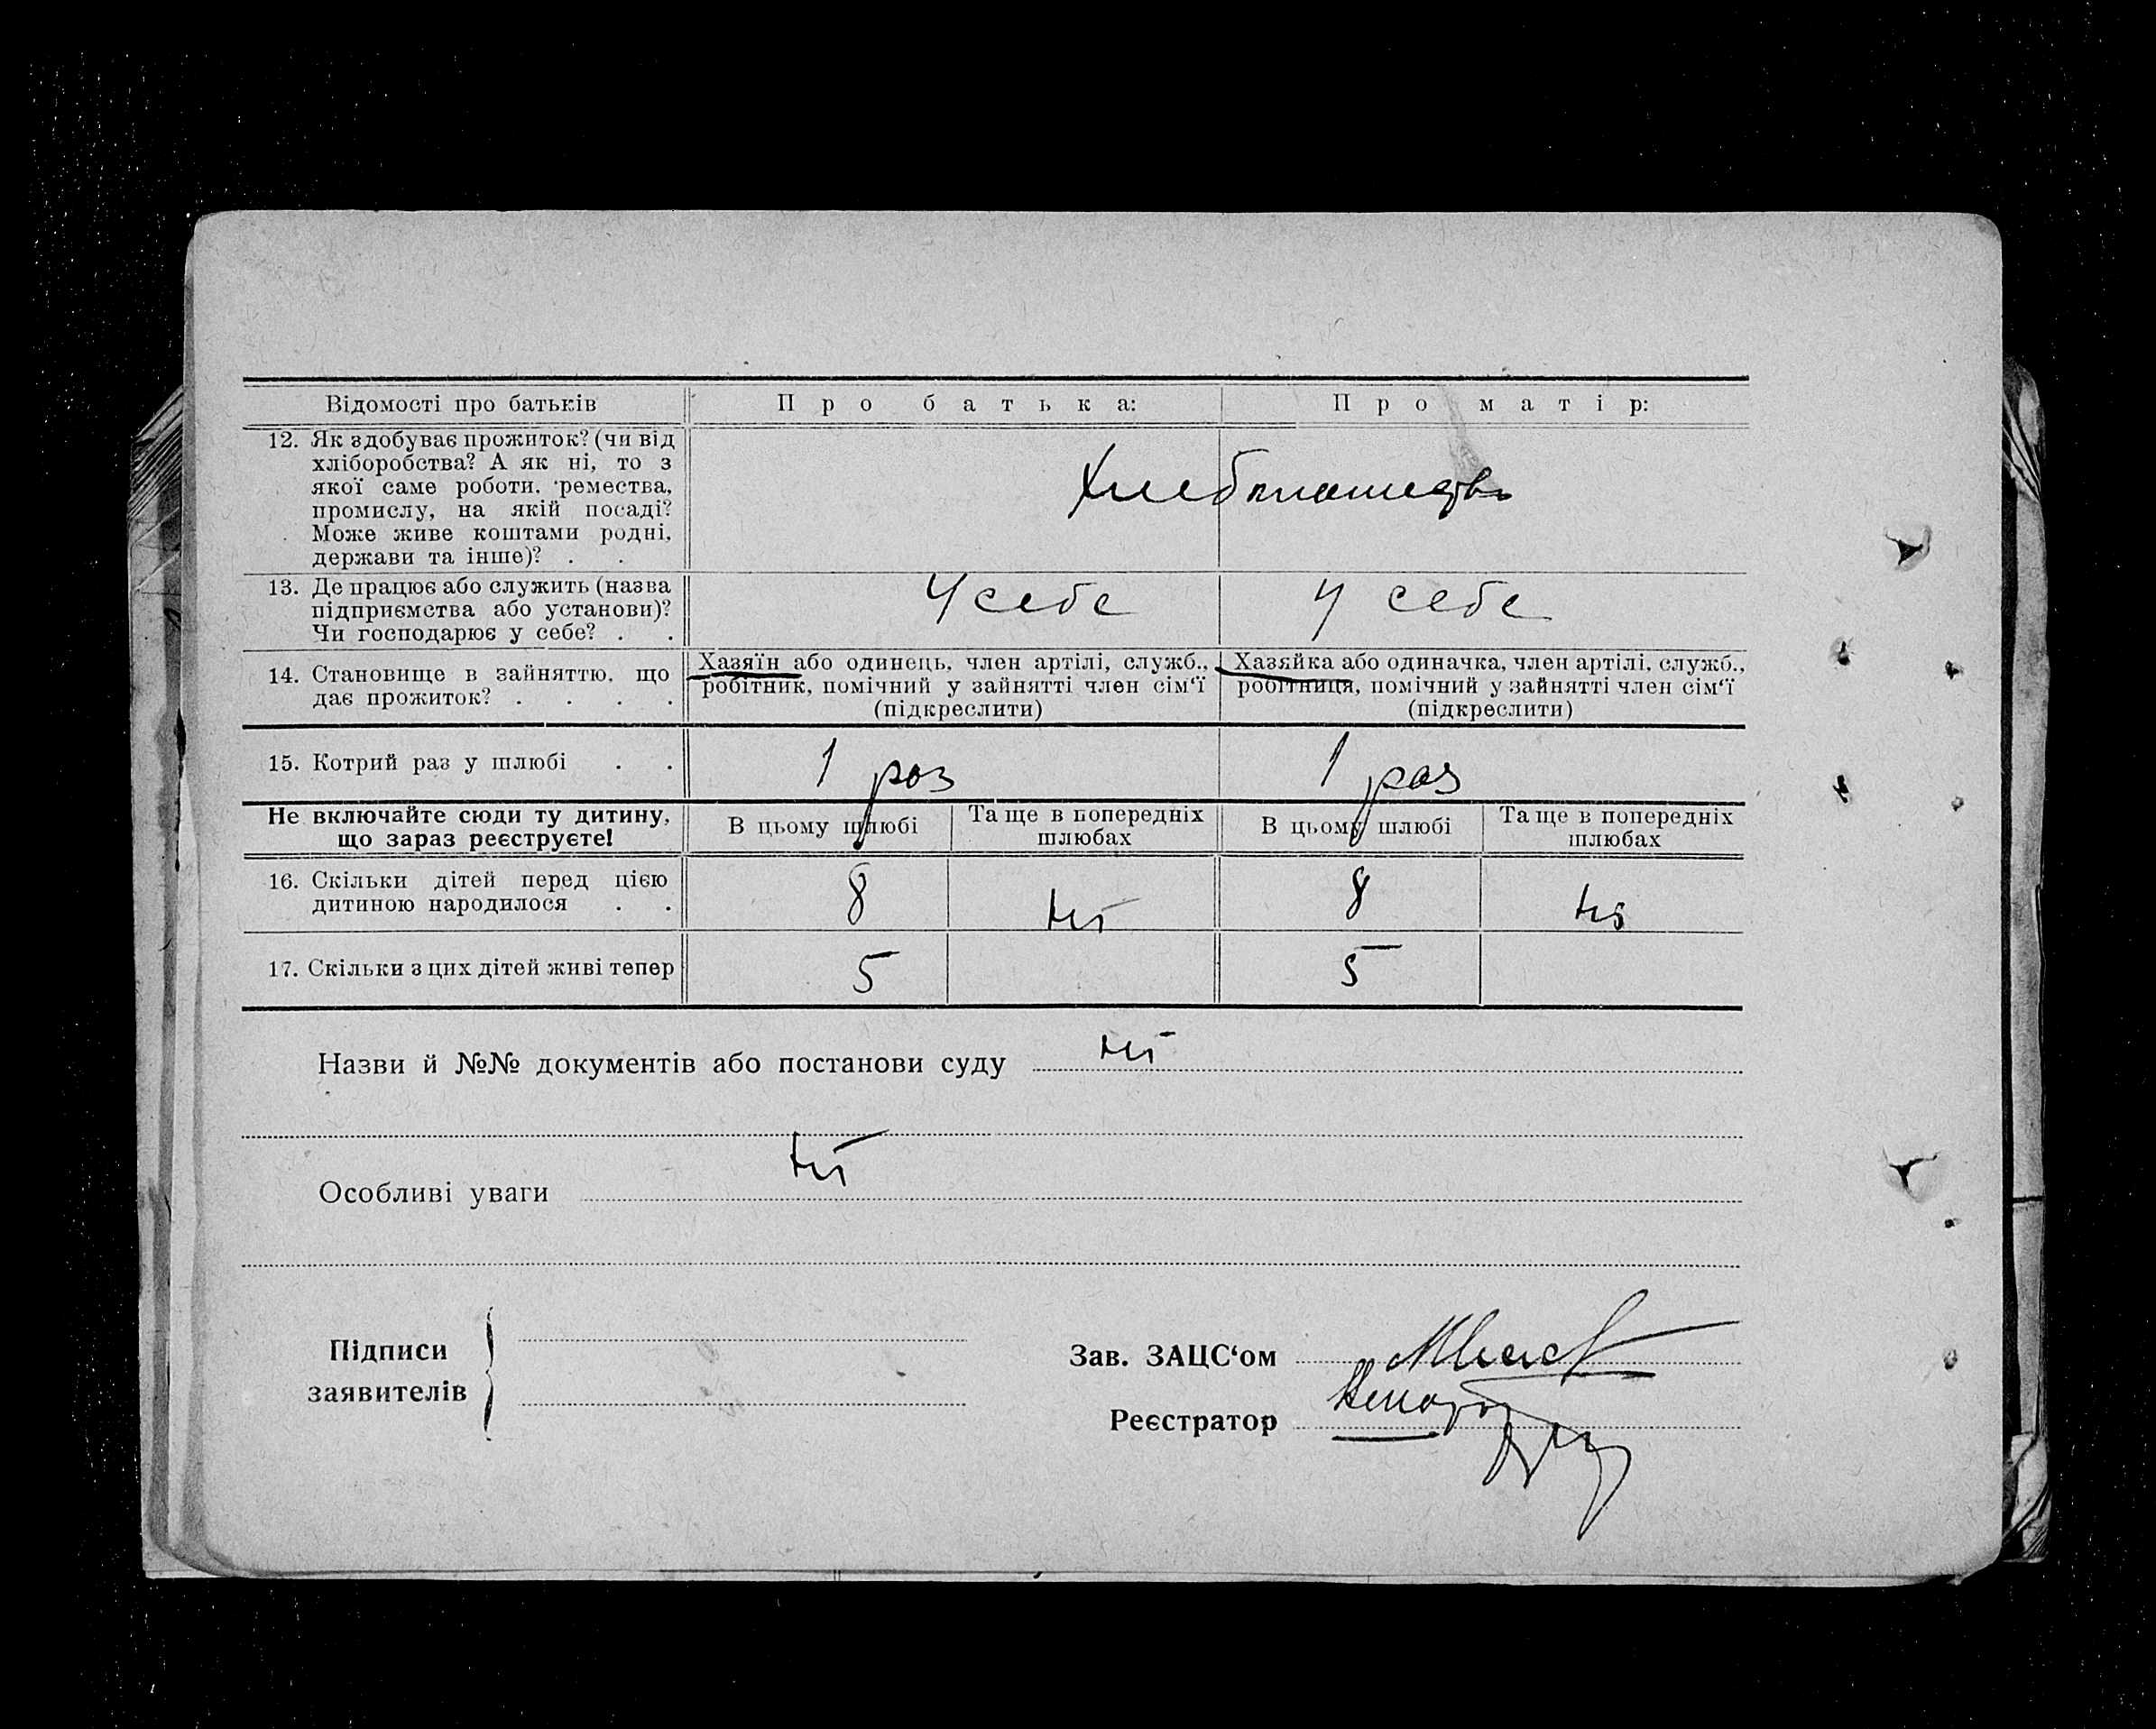 Відомості про батьків Про батька: Про матір:
12. Як здобуває прожиток? (чи від
хліборобства? А як ні, то з
якої саме роботи, ремества,
промислу, на якій посаді?
Може живе коштами родні,
держави та інше)? . .
13. Де працює або служить (назва
підприємства або установи)?
Чи господарює у себе? . .
У себе У себе
14. Становище в зайняттю, що
дає прожиток? . . . .
Хазяїн або одинець, член артілі, служб.,
робітник, помічний у зайнятті член сім‘ї
(підкреслити)
Хазяйка або одиначка, член артілі, служб.,
робітниця, помічний у зайнятті член сім‘ї
(підкреслити)
15. Котрий раз у шлюбі . . 1 раз 1 раз
Не включайте сюди ту дитину,
що зараз реєструєте!
В цьому шлюбі
Та ще в попередніх
шлюбах
В цьому шлюбі
Та ще в попередніх
шлюбах
16. Скільки дітей перед цією
дитиною народилося . .
8 ні 8 ні
17. Скільки з цих дітей живі тепер 5 5
Назви й №№ документів або постанови суду ні
Особливі уваги ні
Підписи
заявителів
Зав. ЗАЦС‘ом
Реєстратор